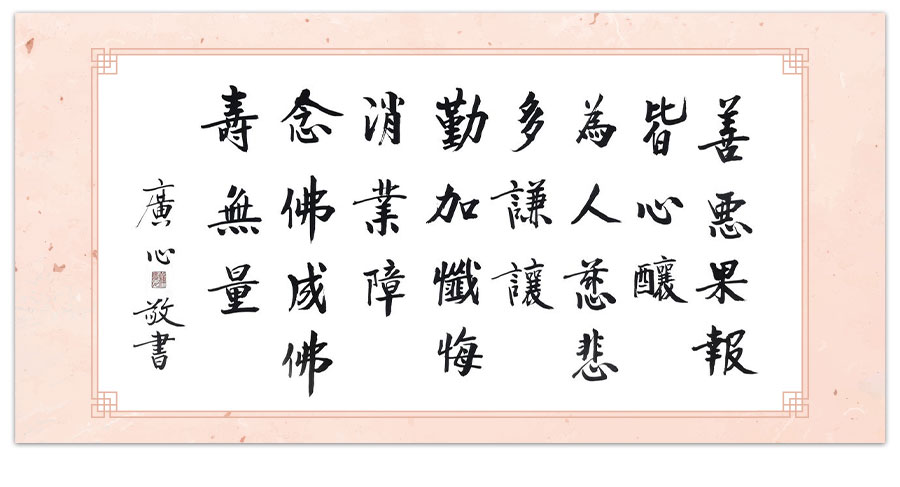 善惡果報
皆心釀
為人慈悲
多謙讓
勤加懺悔
消業障
念佛成佛
壽無量
廣心敬書